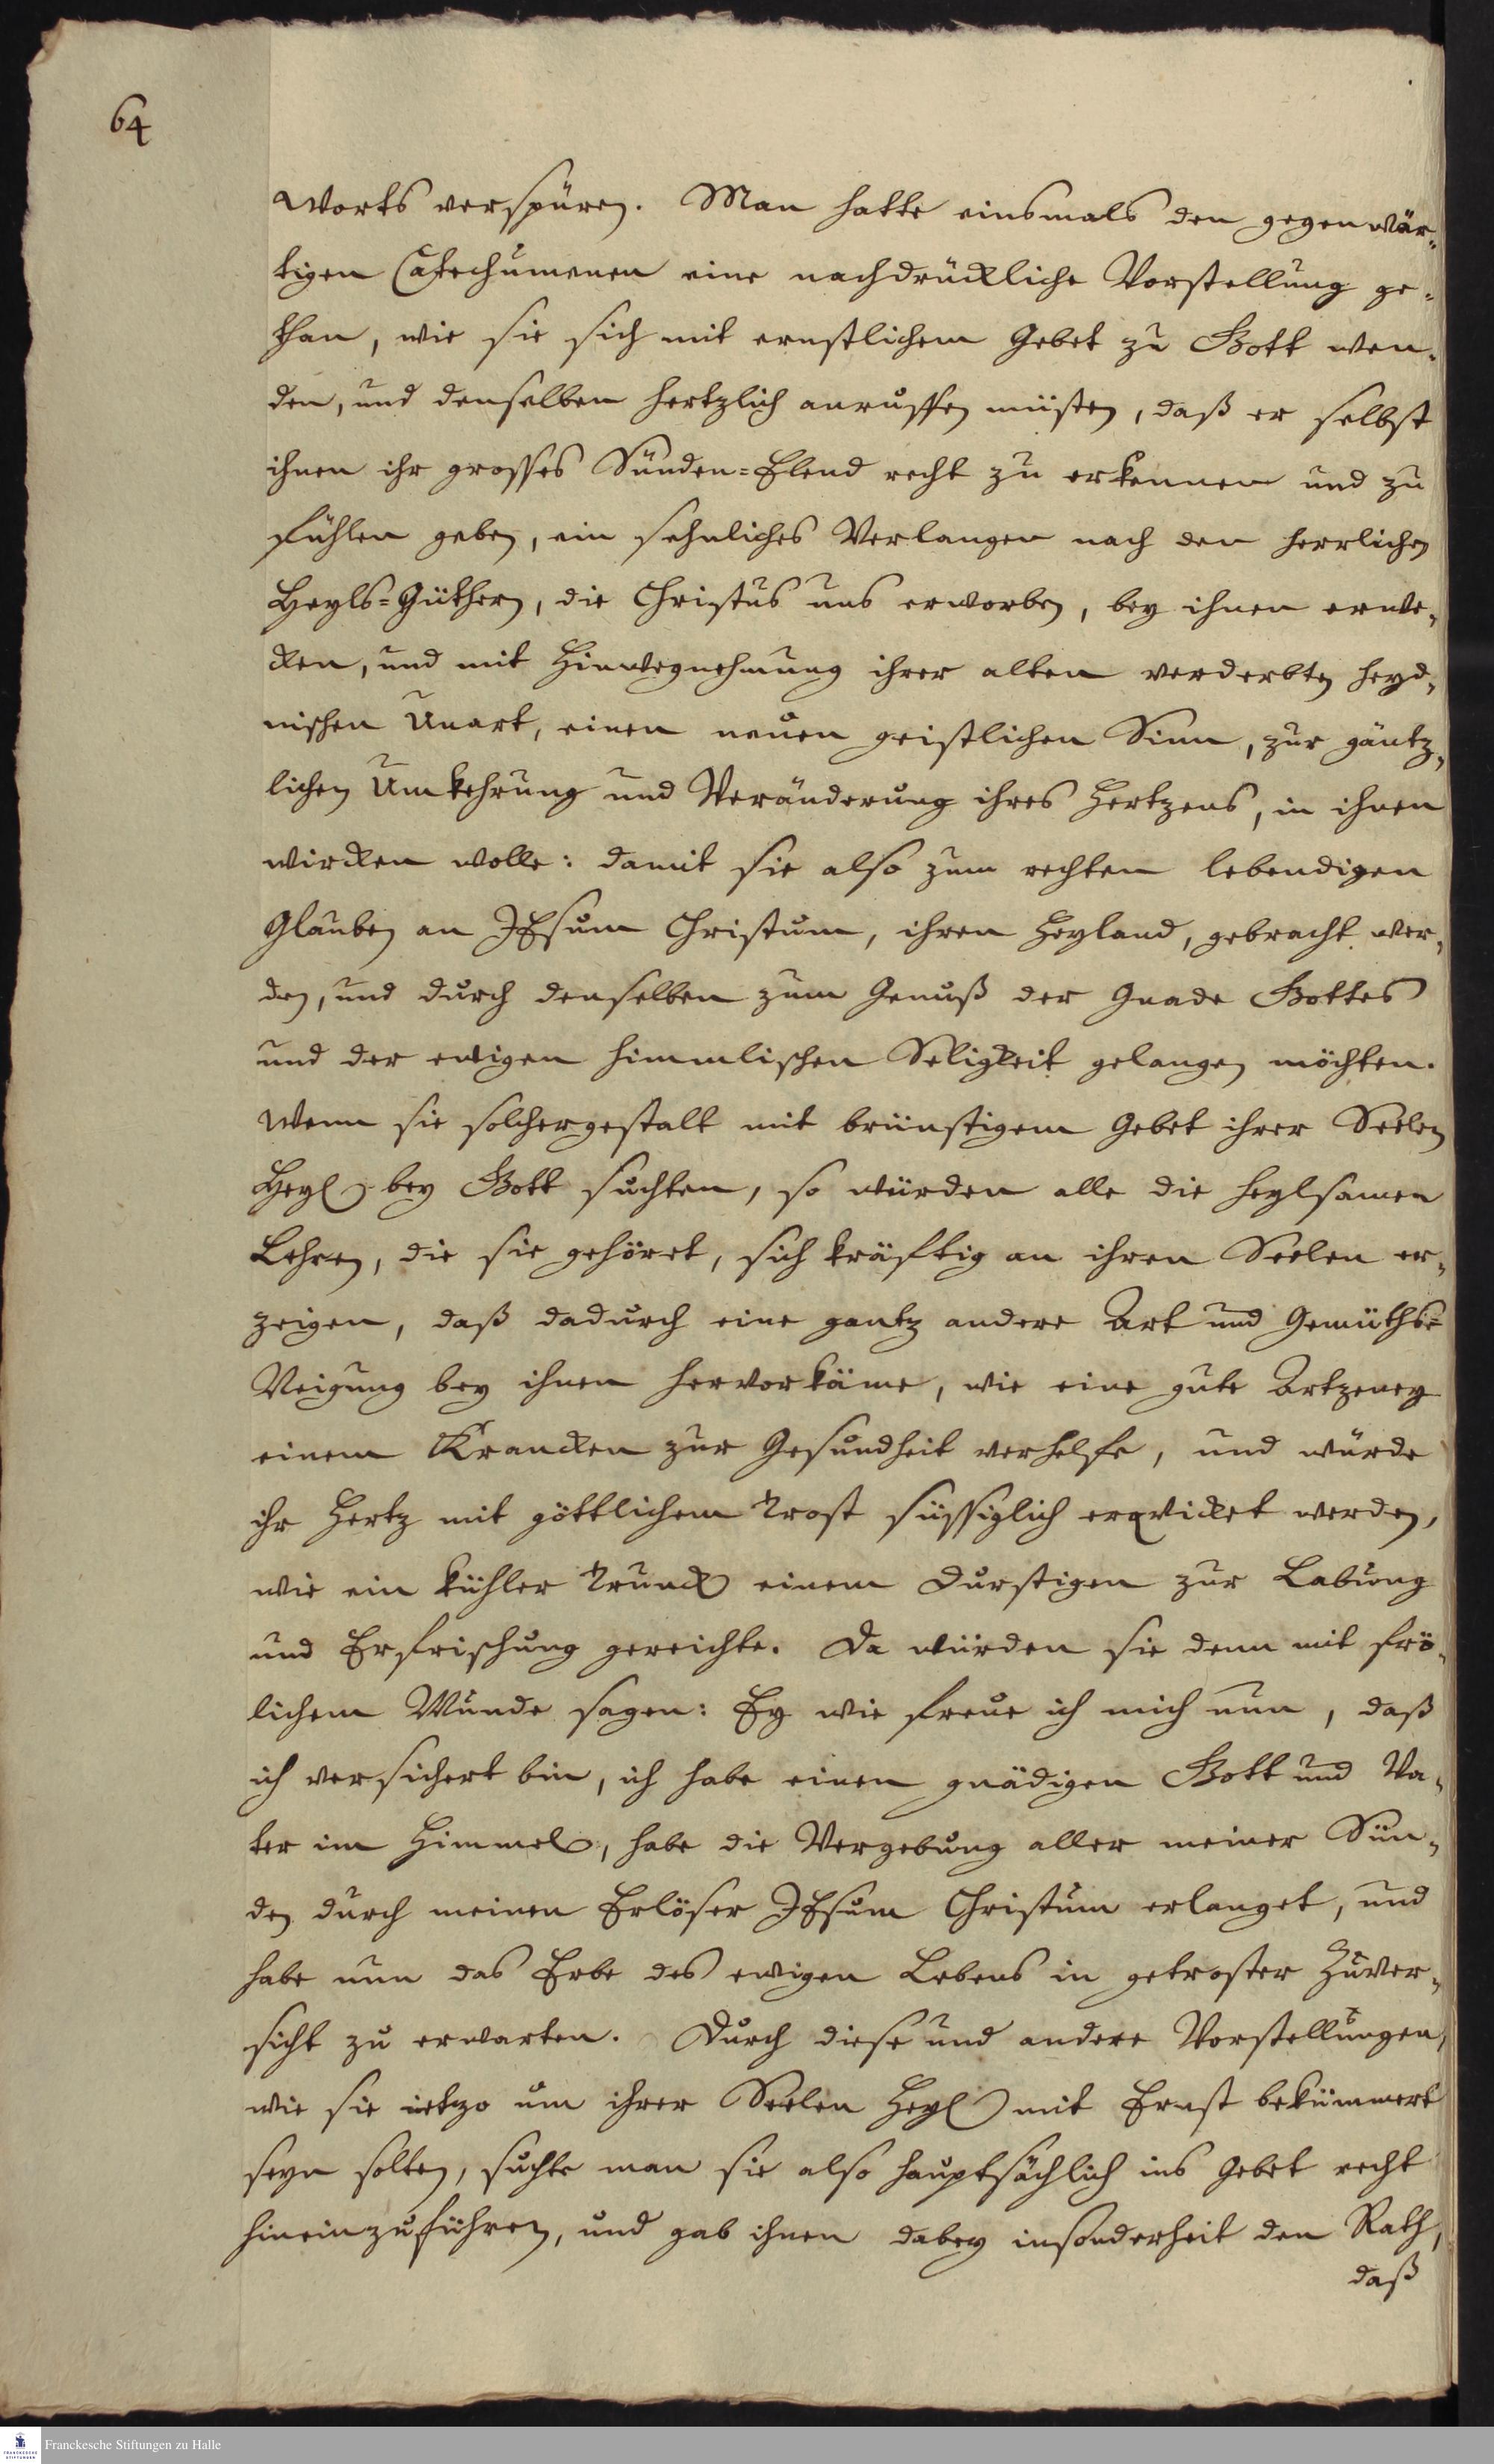 64
Worts verspüren. Man hatte einsmals den gegenwär-
tigen Catechumenen eine nachdrückliche Vorstellung ge-
than, wie sie sich mit ernstlichem Gebet zu Gott wen-
den, und denselben hertzlich anruffen müsten, daß er selbst
ihnen ihr grosses Sünden-Elend recht zu erkennen und zu
fühlen geben, ein sehnliches Verlangen nach den herrlichen
Heyls-Güthern, die Christus uns erworben, bey ihnen erwe-
cken, und mit Hinwegnehmung ihrer alten verderbten heyd-
nischen Unart, einen neuen geistlichen Sinn, zur gäntz-
lichen Umkehrung und Veränderung ihres Hertzens, in ihnen
wircken wolle: damit sie also zum rechten lebendigen
Glauben an JEsum Christum, ihren Heyland, gebracht wer-
den, und durch denselben zum Genuß der Gnade Gottes
und der ewigen himmlischen Seligkeit gelangen möchten.
Wenn sie solchergestalt mit brünstigem Gebet ihrer Seelen
Heyl bey Gott suchten, so würden alle die heylsamen
Lehren, die sie gehöret, sich kräftig an ihren Seelen er-
zeigen, daß dadurch eine gantz andere Art und Gemüths-
Neigung bey ihnen hervorkäme, wie eine gute Artzeney
einem Krancken zur Gesundheit verhelfe, und würde
ihr Hertz mit göttlichem Trost süssiglich erqvicket werden,
wie ein kühler Trunck einem Durstigen zur Labung
und Erfrischung gereichte. Da würden sie denn mit frö-
lichem Munde sagen: Ey wie freue ich mich nun, daß
ich versichert bin, ich habe einen gnädigen Gott und Va-
ter im Himmel, habe die Vergebung aller meiner Sün-
den durch meinen Erlöser JEsum Christum erlanget, und
habe nun das Erbe des ewigen Lebens in getroster Zuver-
sicht zu erwarten. Durch diese und andere Vorstellungen,
wie sie ietzo um ihrer Seelen Heyl mit Ernst bekümmert
seyn solten, suchte man sie also hauptsächlich ins Gebet recht
hineinzuführen, und gab ihnen dabey insonderheit den Rath,
daß
FRANCKESCHE STIFTUNGEN
Franckesche Stiftungen zu Halle